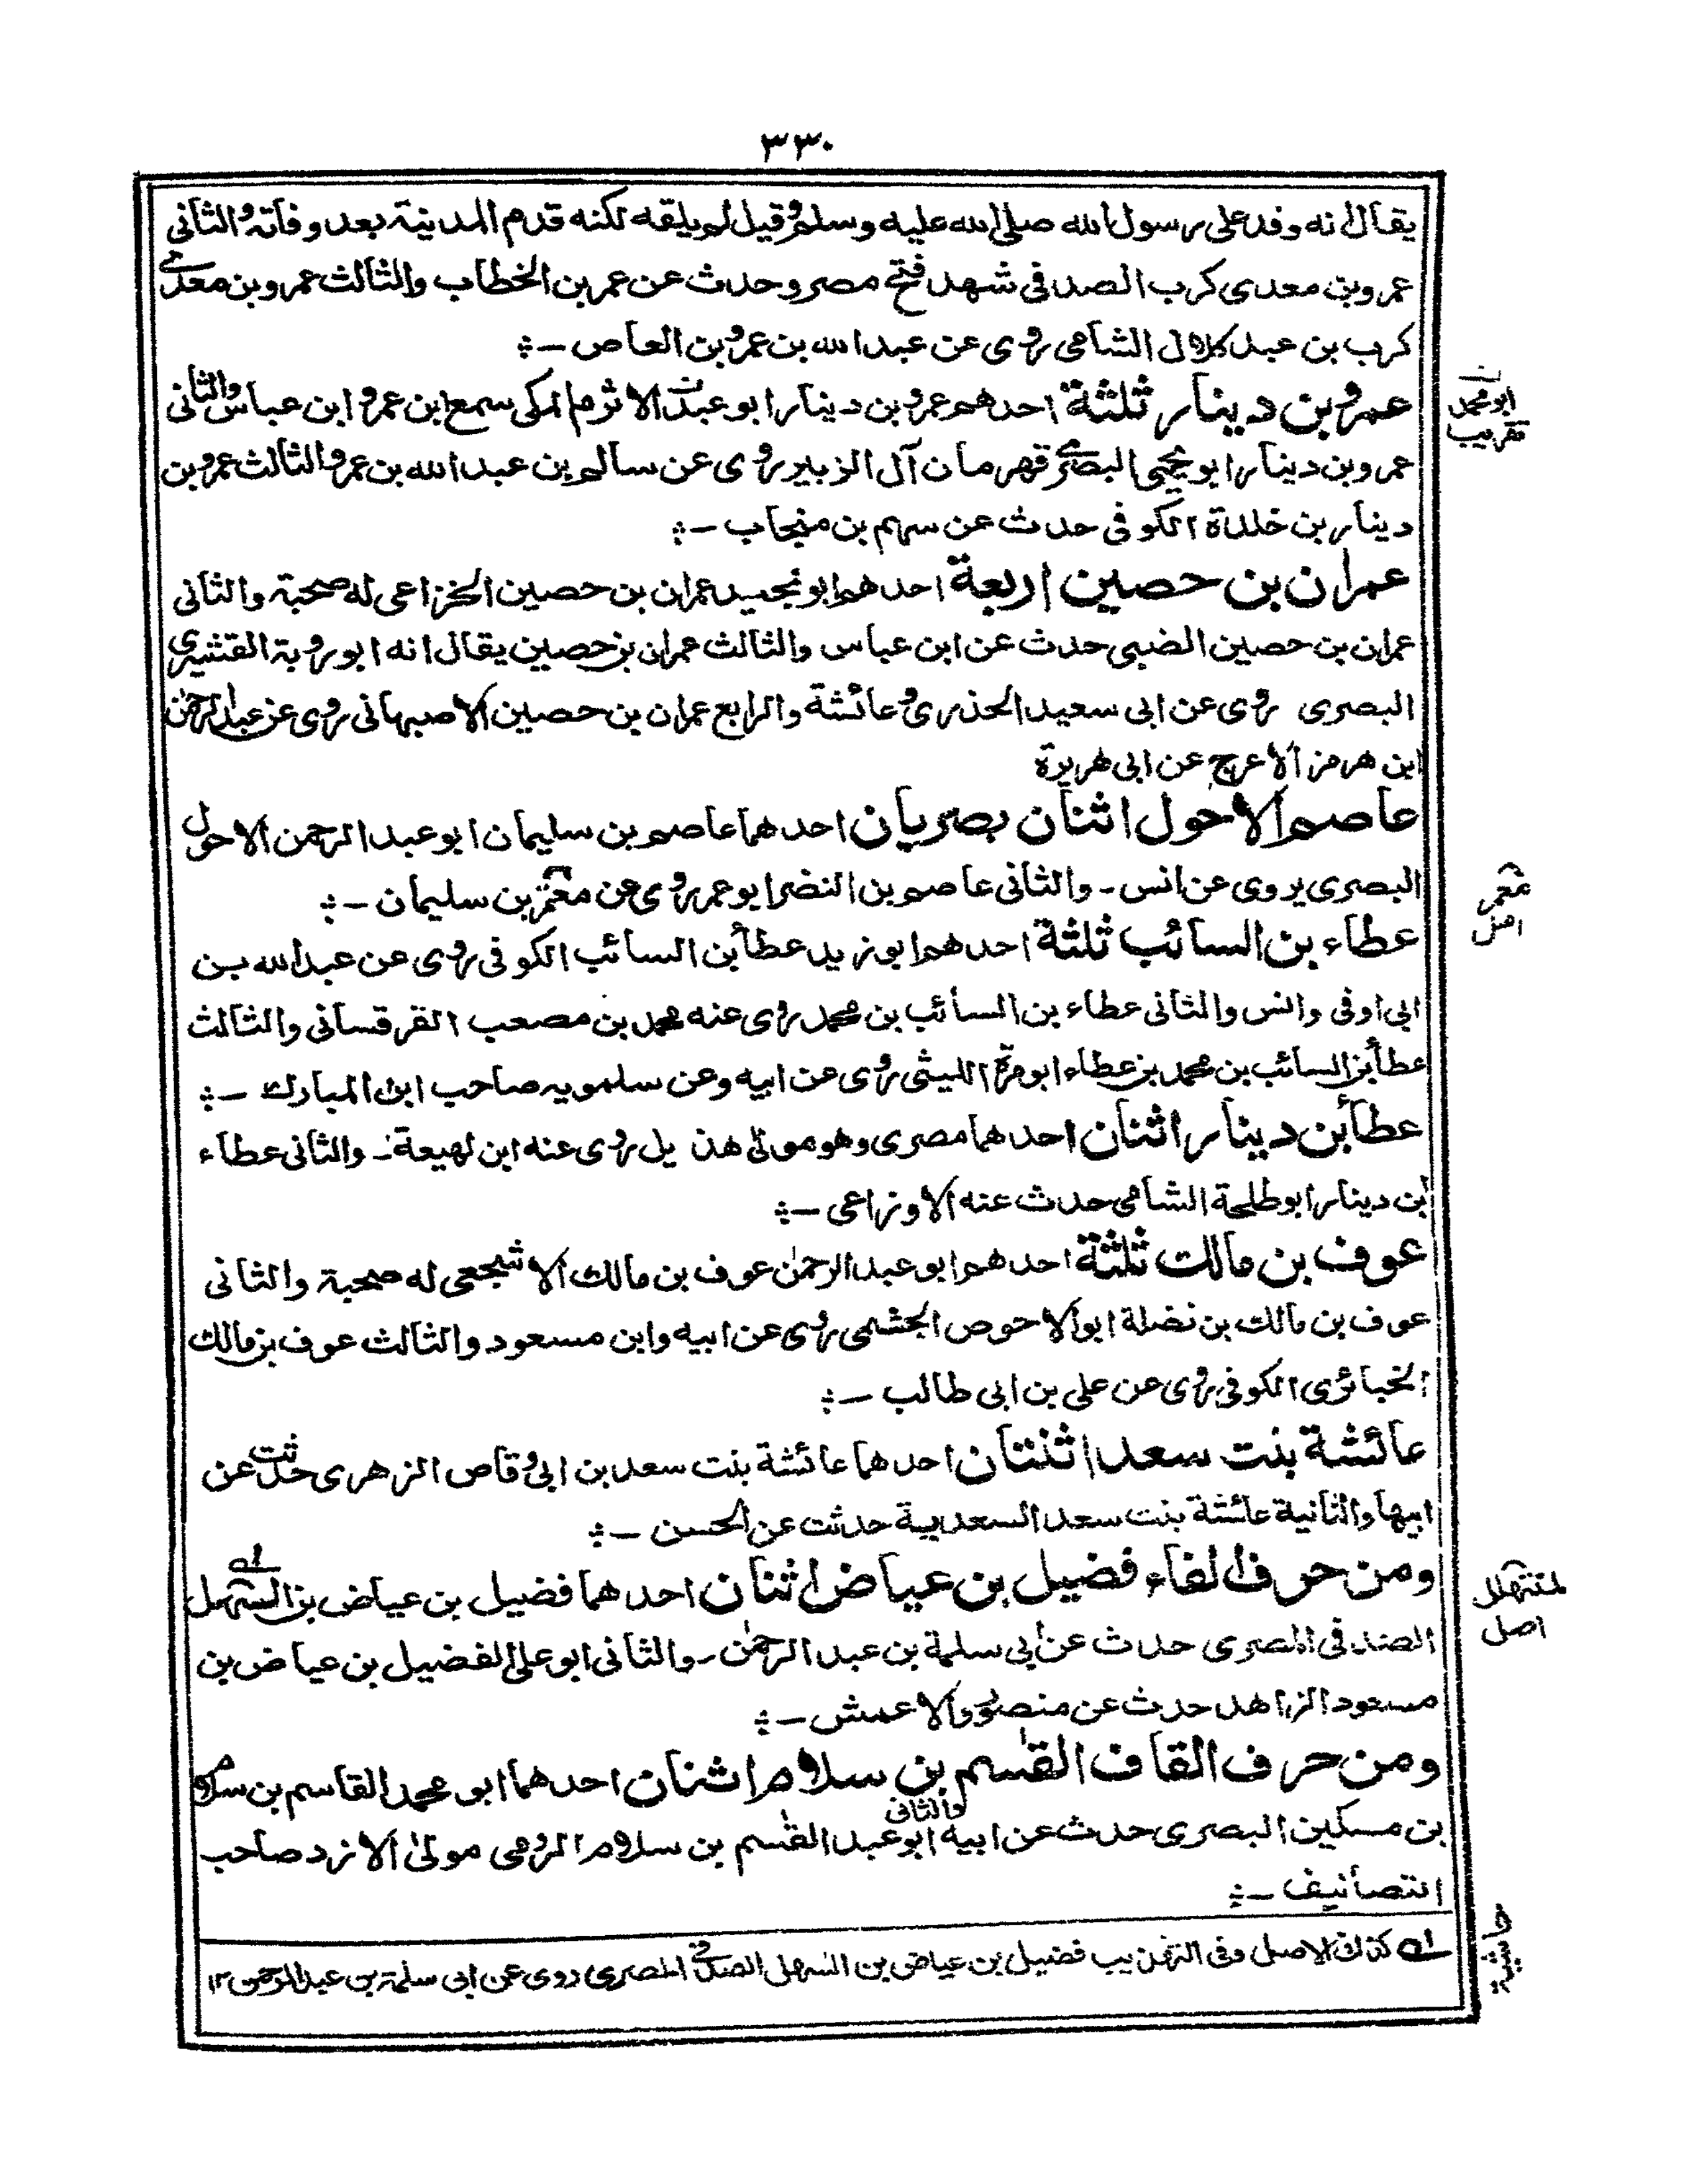 ٣٣٠
يقال انه وفد على رسول الله صلى الله عليه وسلم وقيل لم يلقه لكنه قدم المدينة بعد وفاته والثانى
عمرو بن معدى كرب الصدفى شهد فتح مصر وحدث عن عمر بن الخطاب والثالث عمرو بن معدى
كرب بن عبد كلال الشامى روى عن عبد الله بن عمرو بن العاص -
عمرو بن دينار ثلثة احدهم عمرو بن دينار ابو عبد ن الاثرم المكى سمع ابن عمرو ابن عباس والثانى
ابو محمد
تقريب
عمرو بن دينار ابو يحيى البصرى قهرمان آل الزبير روى عن سالم بن عبد الله بن عمر والثالث عمرو بن
دينار بن خلدة الكوفى حدث عن سهم بن منجاب -
عمران بن حصين اربعة احدهم ابو نجيد عمران بن حصين الخزاعى له صحبة والثانى
عمران بن حصين الضبى حدث عن ابن عباس والثالث عمران بن حصين يقال انه ابو روبة القشيرى
البصرى روى عن ابى سعيد الحذرى وعائشة والرابع عمران بن حصين الاصبهانى روى عن عبد الرحمن
ابن هرمز الاعرج عن ابى هريرة
عاصم الاحول اثنان بصريان احدهما عاصم بن سليمان ابو عبد الرحمن الاحول
البصرى يروى عن انس - والثانى عاصم بن النضر ابو عمر روى عن معتمر بن سليمان -
معمر
اصل
عطاء بن السائب ثلثة احدهم ابو زيد عطأ بن السائب الكوفى روى عن عبد الله بن
ابى اوفى وانس والثانى عطاء بن السائب بن محمد روى عنه محمد بن مصعب القرقسانى والثالث
عطأ بن السائب بن محمد بن عطاء ابو مرة الليثى روى عن ابيه وعن سلمويه صاحب ابن المبارك -
عطأ بن دينار اثنان احدهما مصرى وهو مولى هذيل روى عنه ابن لهيعة - والثانى عطاء
ابن دينار ابو طلحة الشامى حدث عنه الاوزاعى -
عوف بن مالك ثلثة احدهم ابو عبد الرحمن عوف بن مالك الاشجعى له صحبة والثانى
عوف بن مالك بن نضلة ابو الاحوص الجشمى روى عن ابيه وابن مسعود والثالث عوف بن مالك
الخبائرى الكوفى روى عن على بن ابى طالب -
عائشة بنت سعد اثنتان احدهما عائشة بنت سعد بن ابى وقاص الزهرى حدثت عن
ابيها والثانية عائشة بنت سعد السعدية حدثت عن الحسن -
ومن حرف الفاء فضيل بن عياض اثنان احدهما فضيل بن عياض بن السهل
لمنتهلل
اصل
الصدفى المصرى حدث عن ابى سلمة بن عبد الرحمن - والثانى ابو على الفضيل بن عياض بن
مسعود الزاهد حدث عن منصور والاعمش -
ومن حرف القاف القسم بن سلام اثنان احدهما ابو محمد القاسم بن سلام
بن مسكين البصرى حدث عن ابيه والثانى ابو عبد القسم بن سلام الرومى مولى الازد صاحب
التصانيف -
له كذا فى الاصل وفى التهذيب فضيل بن عياض بن السهل الصدفى المصرى روى عن ابى سلمة بن عبد الرحمن ١٢
حاشية